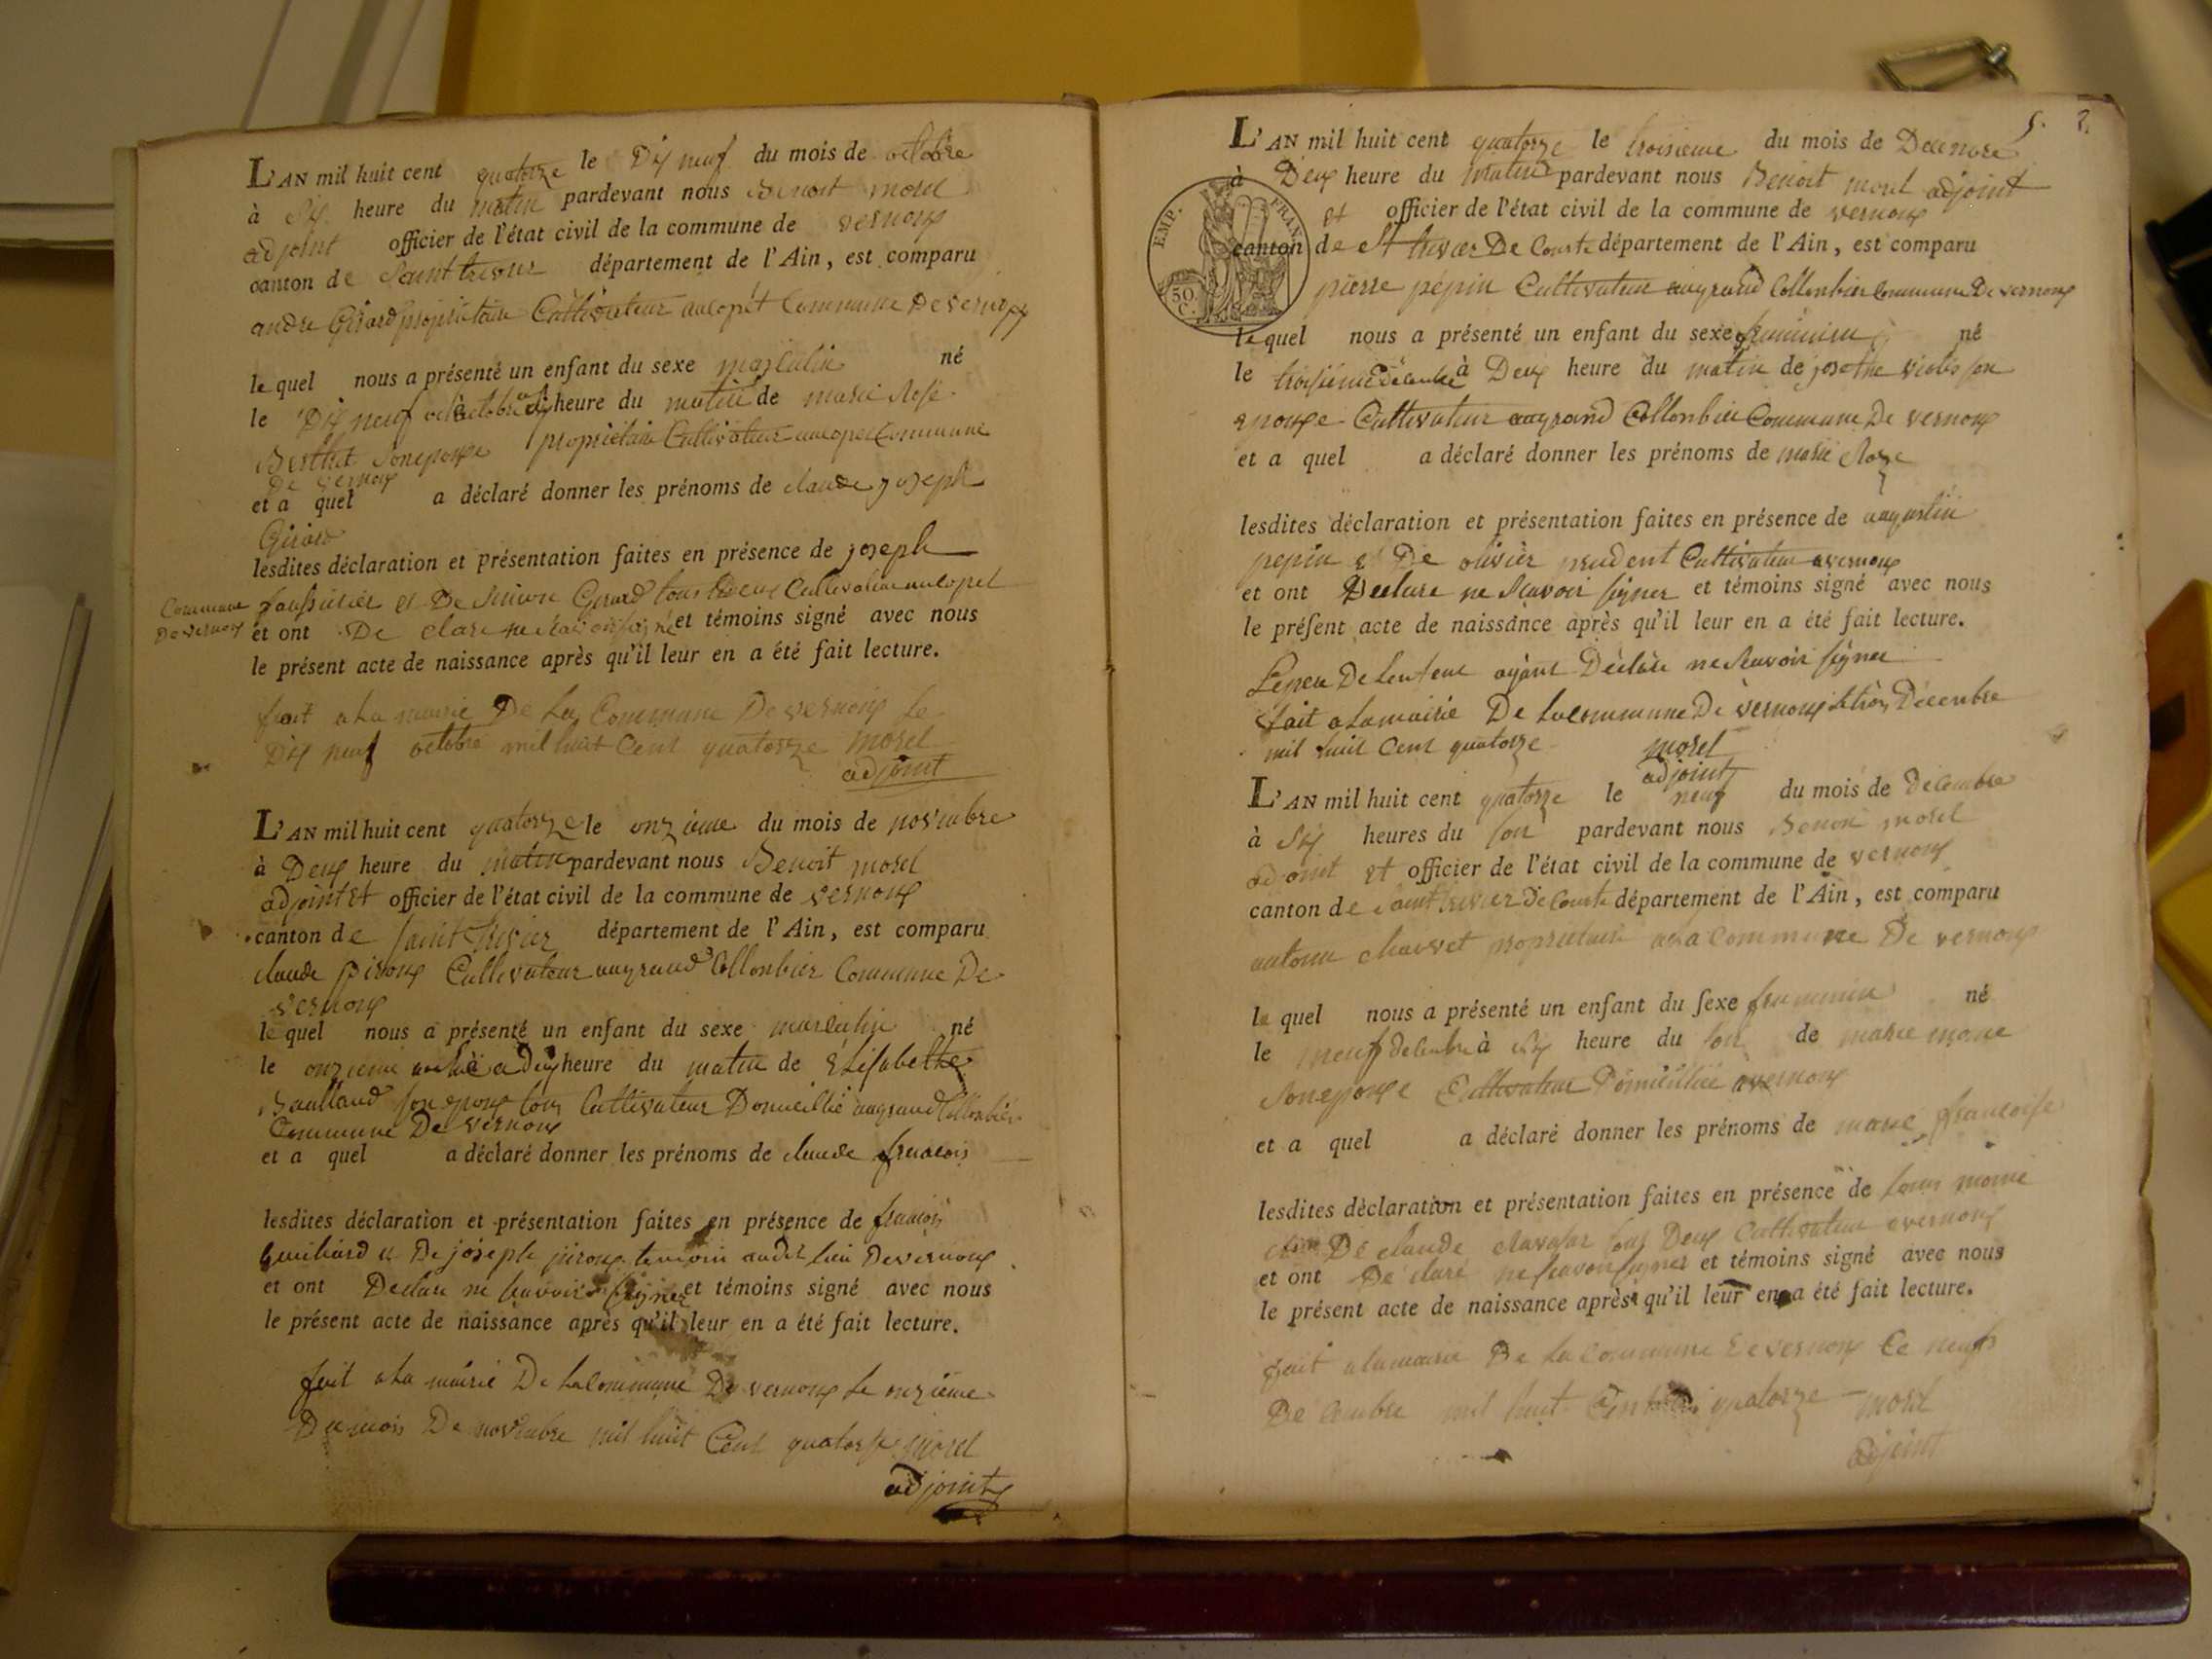 L'AN mil huit cent quatorze le Dix neuf du mois de octobre
à Six heure du matin pardevant nous Benoit morel
adjoint officier de l'état civil de la commune de vernoux
canton de Saint trivier département de l'Ain, est comparu
andre Girard propriétaire Cultivateur aucopet Commune De vernoux
le quel nous a présenté un enfant du sexe masculin né
le Dix neuf octobre à Six heure du matin de marie Rose
Berthet Son epouse propriétaire Cultivateur aucopet Commune
De vernoux
et a quel a déclaré donner les prénoms de claude joseph
Girard
lesdites déclaration et présentation faites en présence de joseph
et De Simon Girard tous Deux Cultivateur aucopet
Commune
De vernoux
et ont De clare ne et témoins signé avec nous
le présent acte de naissance après qu'il leur en a été fait lecture.
fait a la mairie De La Commune De vernoux Le
Dix neuf octobre mil huit Cent quatorze morel
adjoint
L'AN mil huit cent quatorze le onzieme du mois de novembre
à Deux heure du matin pardevant nous Benoit morel
adjoint et officier de l'état civil de la commune de vernoux
canton de saint trivier département de l'Ain, est comparu
claude piroux Cultivateur augrand Collonbier Commune De
vernoux
le quel nous a présenté un enfant du sexe masculin né
le onzieme a Deux heure du matin de Elisabethe
son epouse tous Cultivateur Domicillie augrand Collonbier
Commune De vernoux
et a quel a déclaré donner les prénoms de claude francois
lesdites déclaration et présentation faites en présence de francois
De joseph piroux temoin Lieu De vernoux
et ont Declare ne scavoir signer et témoins signé avec nous
le présent acte de naissance après qu'il leur en a été fait lecture.
fait a La mairie De La Commune De vernoux Le onzieme
Du mois De novembre mil huit Cent quatorze morel
adjoint
5. 2.
L'AN mil huit cent quatorze le troisieme du mois de Decenbre
à Deux heure du matin pardevant nous Benoit morel adjoint
et officier de l'état civil de la commune de vernoux
canton de St trivier De Courte département de l'Ain, est comparu
EMP. FRAN.
50 C.
pierre pépin Cultivateur augrand Collonbier Commune De vernoux
le quel nous a présenté un enfant du sexe feminin né
le troisieme Décenbre à Deux heure du matin de son
epouse Cultivateur augrand Collonbier Commune De vernoux
et a quel a déclaré donner les prénoms de marie Roze
lesdites déclaration et présentation faites en présence de augustin
pepin et De olivier prudent Cultivateur a vernoux
et ont Declare ne Scavoir signer et témoins signé avec nous
le présent acte de naissance après qu'il leur en a été fait lecture.
Le pere De Lenfent ayant Déclare ne Scavoir signer
fait a La mairie De La commune De vernoux Le trois Décenbre
mil huit Cent quatorze morel
adjoint
L'AN mil huit cent quatorze le neuf du mois de décembre
à Six heures du soir pardevant nous Benoit morel
adjoint et officier de l'état civil de la commune de vernoux
canton de saint trivier De Courte département de l'Ain, est comparu
antoine propriétaire a la Commune De vernoux
le quel nous a présenté un enfant du sexe feminin né
le neuf décenbre à Six heure du soir de marie
Son epouse Cultivateur Domicillie a vernoux
et a quel a déclaré donner les prénoms de marie francoise
lesdites déclaration et présentation faites en présence de
De claude tous Deux Cultivateur a vernoux
et ont De clare ne scavoir signer et témoins signé avec nous
le présent acte de naissance après qu'il leur en a été fait lecture.
fait a la mairie De La commune De vernoux Le neuf
De cembre mil huit Cent quatorze morel
adjoint